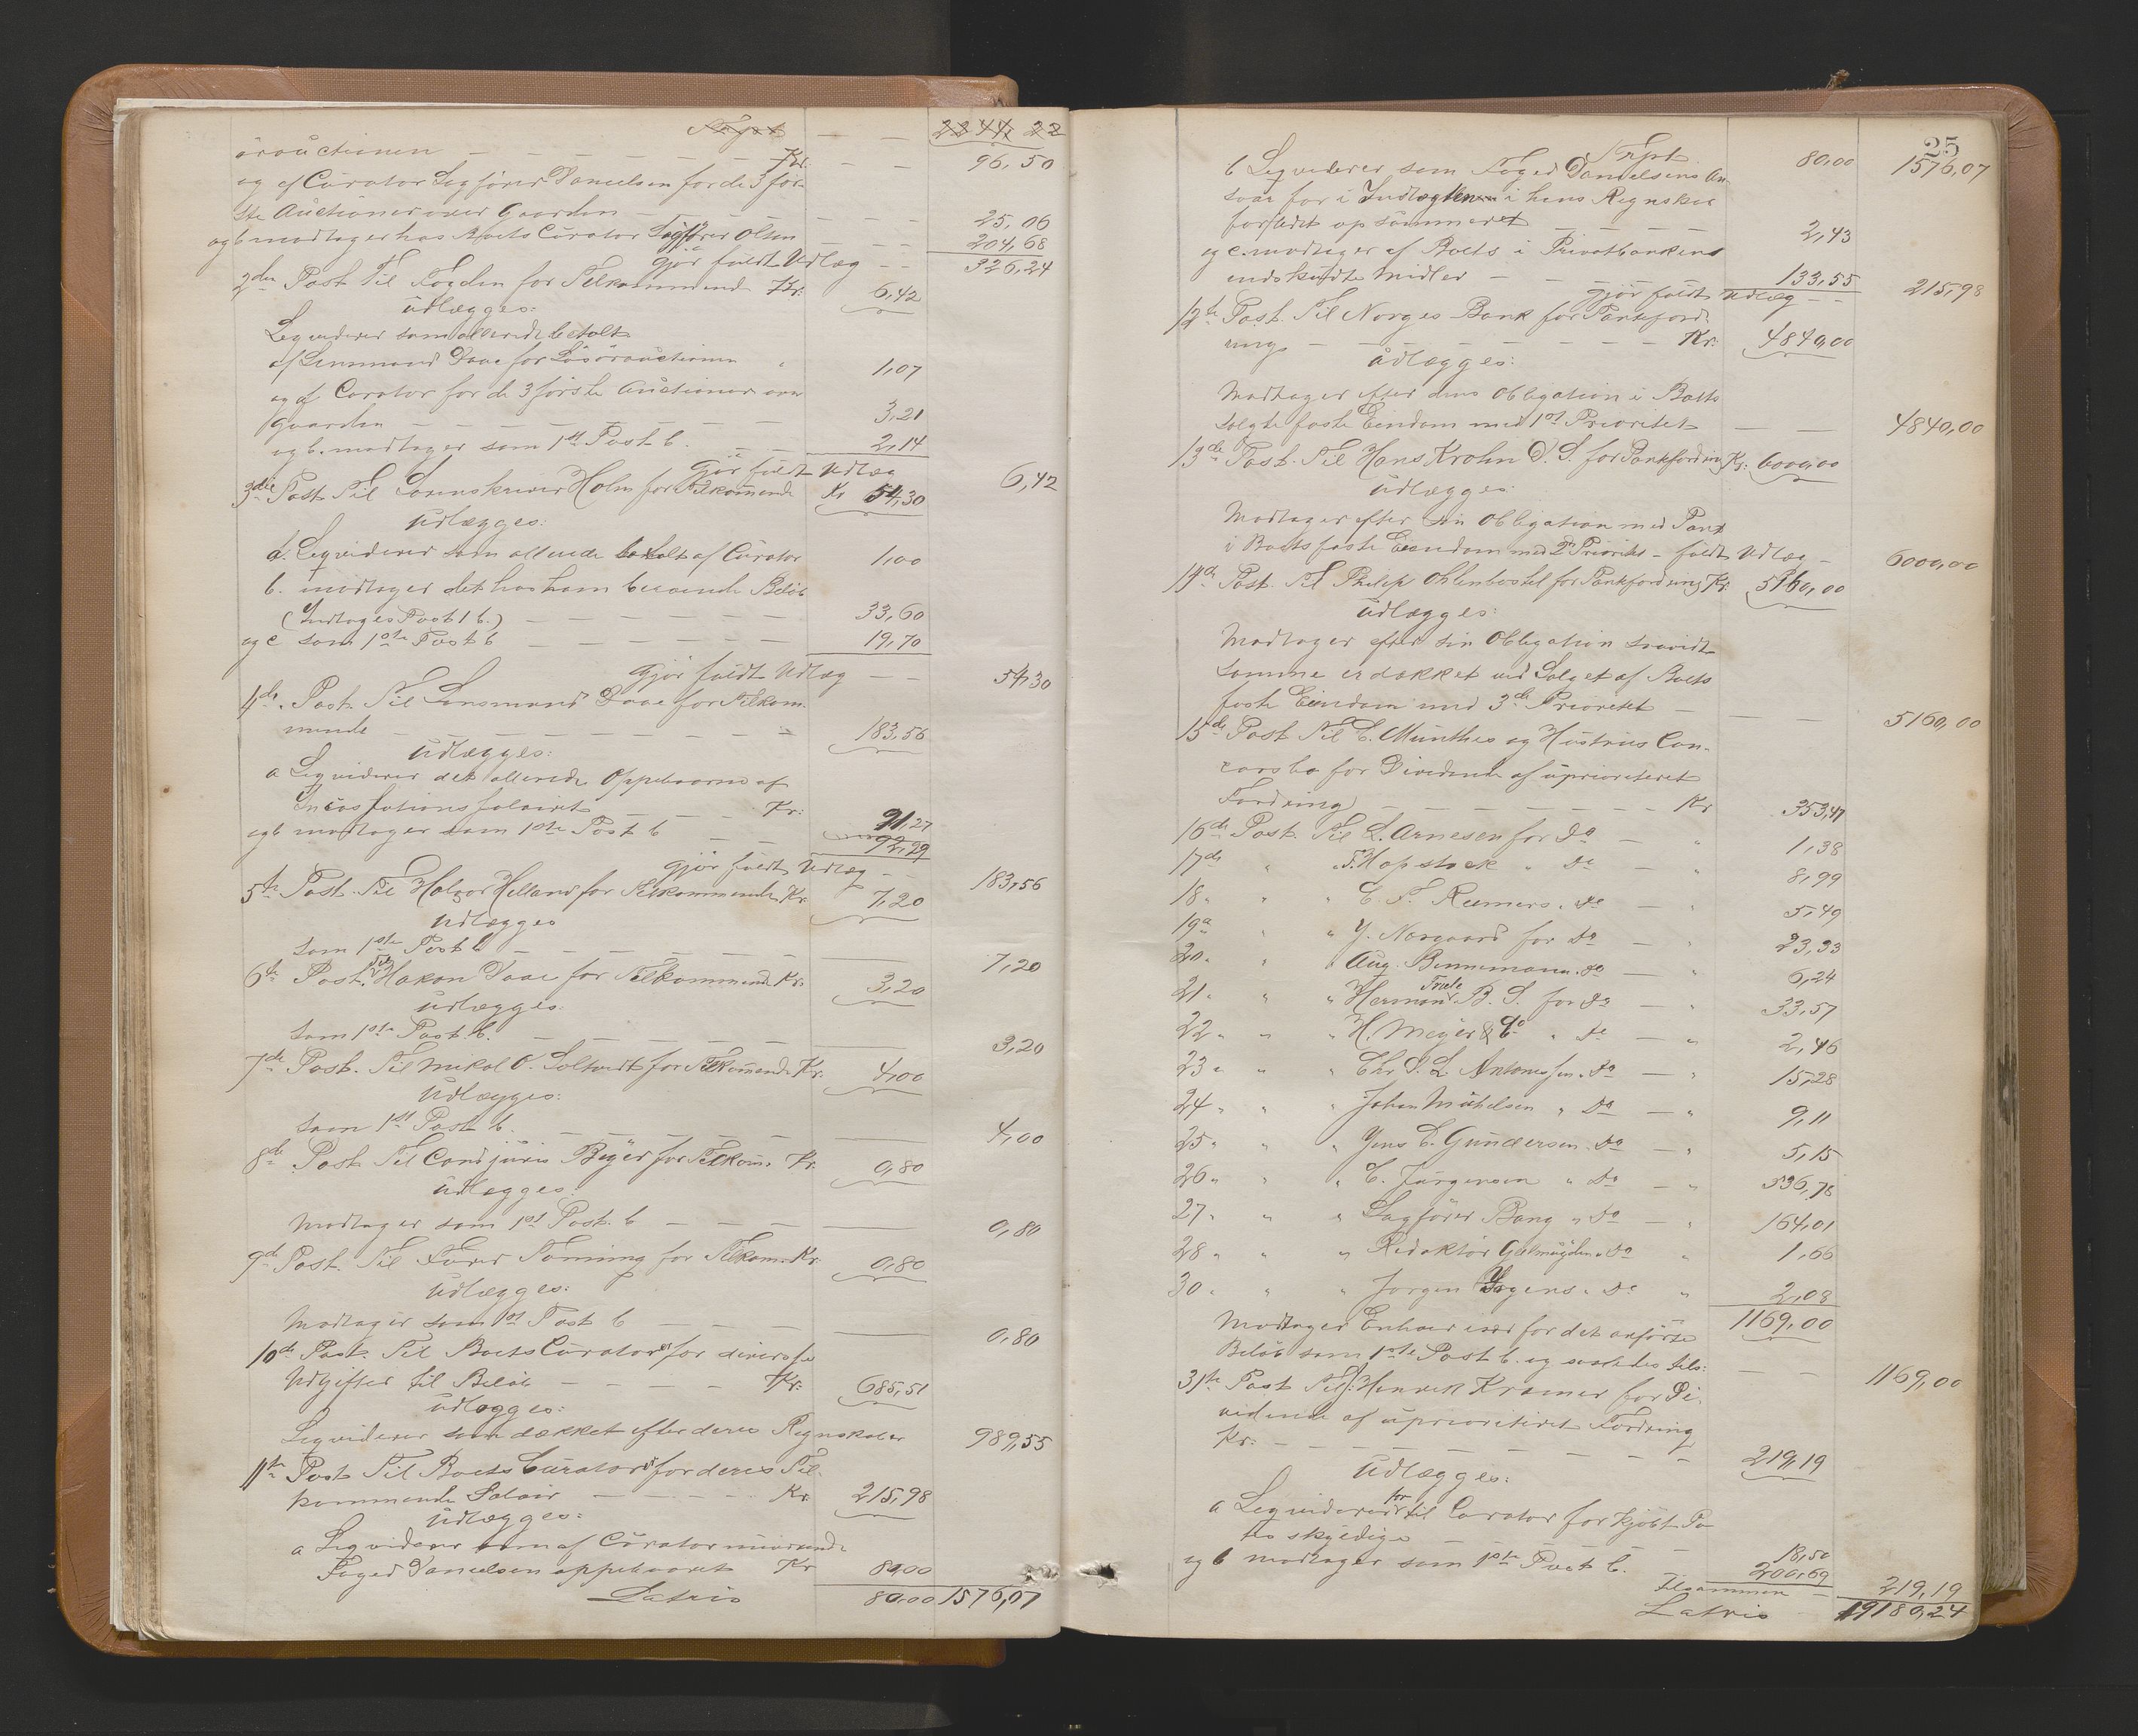 Trspt — — 2244, 22
örauctionen — — — — — — Kr. — — 96,50
og af Curator Sagförer Danielsen for de 3 för-
ste Auctioner over Gaarden — — — — — — 25,06
og b modtager hos Boets Curator Sagförer Olsen — — 204,68
gjör fuldt Udlæg — — 326,24
2den Post. Til Fogden for Tilkommende Kr: 6,42
Udlægges:
Liqviderer som allerede betalt
af Lensmand Daae for Lösöreauctionen „ 1,07
og af Curator for de 3 förste Auctioner over
Gaarden — — — — — — 3,21
og b. modtager som 1ste Post b. — — 2,14
gjör fuldt Udlæg 6,42
3die Post. Til Sorenskriver Holm for Tilkommende Kr 54,30
Udlægges:
a. Liqviderer som allerede betalt af Curator 1,00
b. modtager det hos ham beroende Belöb
(Indtægts Post 1 b.) — — — — — 33,60
og c som 1ste Post b — — — — — 19,70
gjör fuldt Udlæg — — 54,30
4de. Post. Til Lensmand Daae for Tilkom-
mende — — — — — — — 183,56
Udlægges:
a Liqviderer det allerede Oppebaarne af
Incassationssalairet — — — Kr: 91,27
og b modtager som 1ste Post b — 92,29
gjör fuldt Udlæg — — 183,56
5te Post. Til Holger Helland for Tilkommende Kr. 7,20
Udlægges
som 1ste Post b — — — — — 7,20
6te Post. Til Hakon Daae for Tilkommende Kr. 3,20
Udlægges:
som 1ste Post. b. — — — — — 3,20
7de Post. Til Nikol O. Soltvedt for Tilkommende Kr. 4,00
Udlægges:
som 1st Post b. — — — — — 4,00
8de Post. Til Cand juris Beyer for Tilkom. Kr. 0,80
Udlægges:
Modtager som 1st Post. b — — — 0,80
9de Post. Til Fører Fønning for Tilkom. Kr. 0,80
Udlægges:
Modtager som 1st Post b — — — 0,80
10de Post. Til Boets Curatorer for diverse
Udgifter til Beløb — — — — Kr: 685,51
Udlægges:
Liqviderer som dækket efter deres Regnskaber 989,55
11te Post. Til Boets Curatorer for deres Til-
kommende Salair — — — — Kr. 215,98
Udlægges:
a Liqviderer som af Curator nuværende
Foged Danielsen oppebaaret Kr 80,00
Latris 80,00 1576,07
25
Trspt 80,00 1576,07
b Liqviderer som Foged Danielsens An-
svar for i Indtægten i hans Regnskab
forfeilet opsummeret — — — — 2,43
og c. modtager af Boets i Privatbanken
indskudte Midler — — — — 133,55
gjör fuldt Udlæg — — 215,98
12te Post. Til Norges Bank for Pantefordr-
ing — — — — — — — Kr. 4840,00
Udlægges:
Modtager efter dens Obligation i Boets
solgte faste Eiendom med 1st Prioritet — — 4840,00
13de Post. Til Hans Krohn D. S. for Pantfordring Kr. 6000,00
Udlægges
Modtager efter sin Obligation med Pant
i Boets faste Eiendom med 2den Prioritet — fuldt Udlæg — 6000,00
14de Post. Til Philip Ohlenbostel for Pantfordring Kr. 5160,00
Udlægges:
Modtager efter sin Obligation saavidt
samme er dækket ved Salget af Boets
faste Eiendom med 3de Prioritet — — — 5160,00
15de Post. Til C. Munthes og Hustrues Con-
cursbo for Dividende af uprioriteret
Fordring — — — — — — — Kr 353,47
16de Post. Til L. Arnesen for Do — „ 1,38
17de „ „ F. Hopstock „ Do — „ 8,99
18 „ „ „ C. F. Reimers „ Do — „ 5,49
19de „ „ J. Norgaard for Do — „ 23,33
20 „ „ „ Aug. Bennemann „ Do — „ 6,24
21 „ „ „ Herman Friele B. S. for Do — „ 33,57
22 „ „ „ H. Meyer & Co „ Do — „ 2,46
23 „ „ „ Chr. S. L. Antonissen „ Do — „ 15,28
24 „ „ „ Johan Michelsen „ Do — „ 9,11
25 „ „ „ Jens C. Gundersen „ Do — „ 5,15
26 „ „ „ C. Jürgensen „ Do — „ 536,78
27 „ „ „ Sagförer Bang „ Do — „ 164,01
28 „ „ „ Redaktör Do „ 1,66
30 „ „ „ Jörgen „ Do „ 2,08
Modtager Enhver især for det anförte 1169,00
Belöb som 1ste Post b. og saaledes tils: — — 1169,00
31te Post Til J. Henrik Kramer for Di-
vidende af uprioriteret Fordring
Kr: — — — — — — — — 219,19
Udlægges:
a Liqviderer for til Curator for kjöbt Po-
tes skyldige — — — — — — 18,50
og b modtager som 1ste Post b. 200,69
tilsammen — 219,19
Latris 19180,24